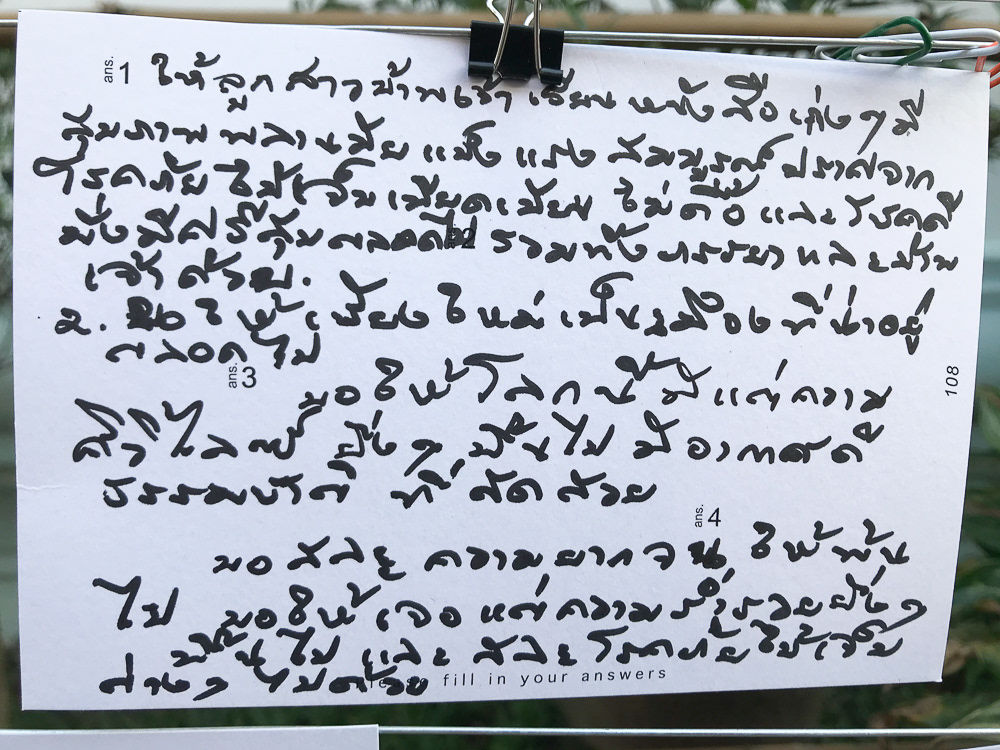 ans. 1 ให้ลูกสาวข้าพเจ้า เรียนหนังสือเก่งๆ มี
สุขภาพพลานมัย แข็งแรง สมบูรณ์ ปราศจาก
โรคภัยไข้เจ็บ เบียดเบียน ไม่ดื้อ และโชคดี
มั่งมีศรีสุขตลอดไป รวมทั้งภรรยาและข้าพ
เจ้าด้วย.
2. ขอให้เมืองใหม่ เป็นเมืองที่น่าอยู่
ตลอดไป
ans. 3 ขอให้โลกนี้มีแต่ความ
ศิวิไลซ์ ยิ่งๆ ขึ้นไป มีอากาศดี
ธรรมชาติ ที่สดสวย
ans. 4
ขอสละความยากจน ให้พ้น
ไป ขอให้เจอแต่ความร่ำรวยยิ่งๆ
ขึ้นไป และสละโรคภัยไข้เจ็บ
ต่างๆ ไปด้วย
fill in your answers
108